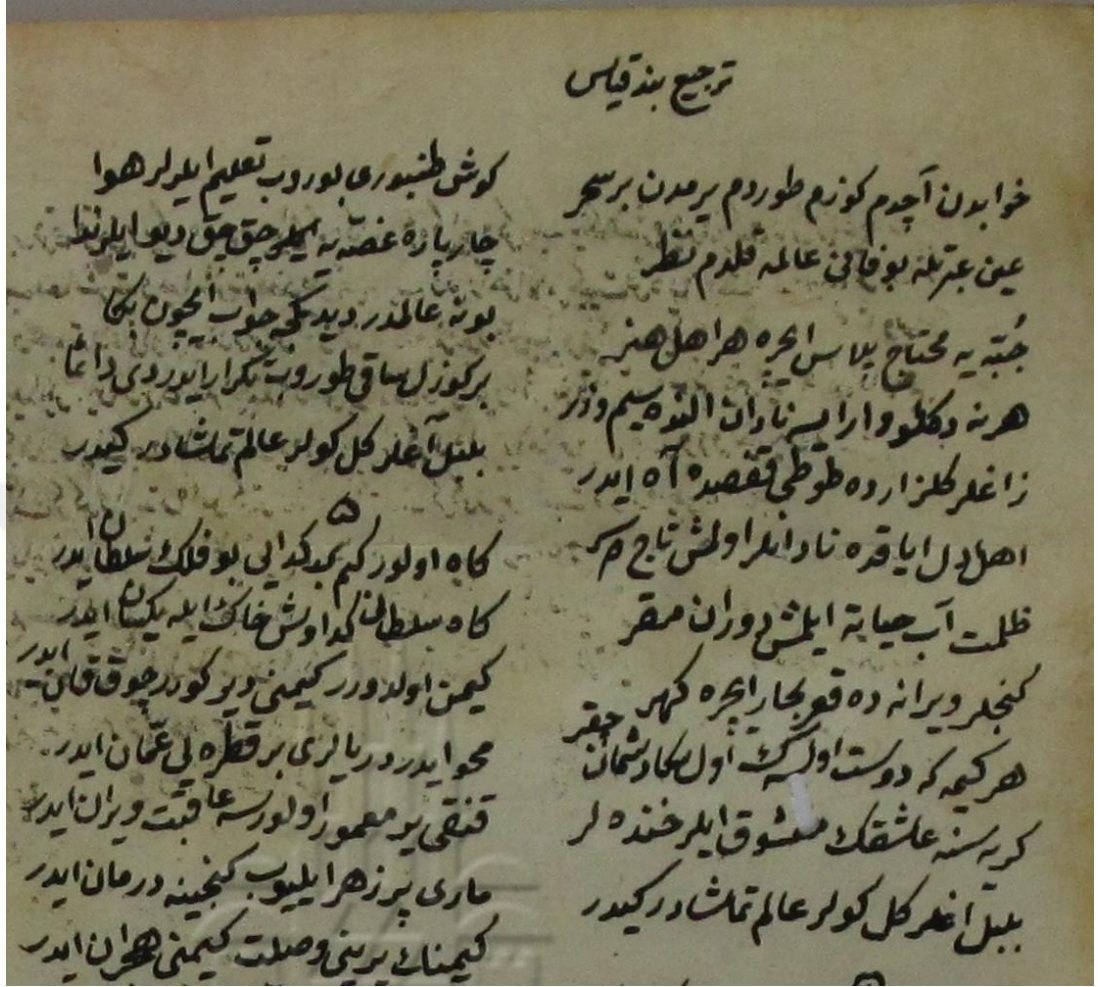 ترجيع بند قياس
خوابدن آچدم كوزم طوردم يرمدن بر سحر
عين عبرتله بو فانى عالمه قلدم نظر
جبّه يه محتاج پلاس ايچره هر اهل هنر
هر نه دكلو وار ايسه نادان النده سيم و زر
زاغلر كلزارده طوطى قفصده آه ايدر
اهل دل اياقده نادانلر اولمش تاج سر
ظلمت آب حياته ايلمش دوران مقر
كنجلر ويرانه ده قعر بحار ايچره كهر
هر كيمه كه دوست اولسه ك اول سكا دشمان چقر
كريه سنه عاشقك معشوق ايلر خنده لر
بلبل اغلر كل كولر عالم تماشادر كيدر
كوش طنبورى بوروب تعليم ايلرلر هوا
چارپاره غصه يه چق چق ديو ايلر ندا
بو نه عالمدر ديدكجه جواب ايچون بكا
بر كوزل ساقى طوروب تكرار ايدردى دائما
بلبل آغلر كل كولر عالم تماشادر كيدر
۵
كاه اولور كيم بر كدايى بو فلك سلطان ايدر
كاه سلطان كدا اولمش خاك ايله يكسان ايدر
كيمن اولدورر كيمنى ديركورر چوق قان ايدر
محو ايدر دريالرى بر قطره يى عمان ايدر
قنقى ير معمور اولورسه عاقبت ويران ايدر
مارى پر زهر ايليوب كنجينه درمان ايدر
كيمناك يرينى وصلت كيمنى هجران ايدر